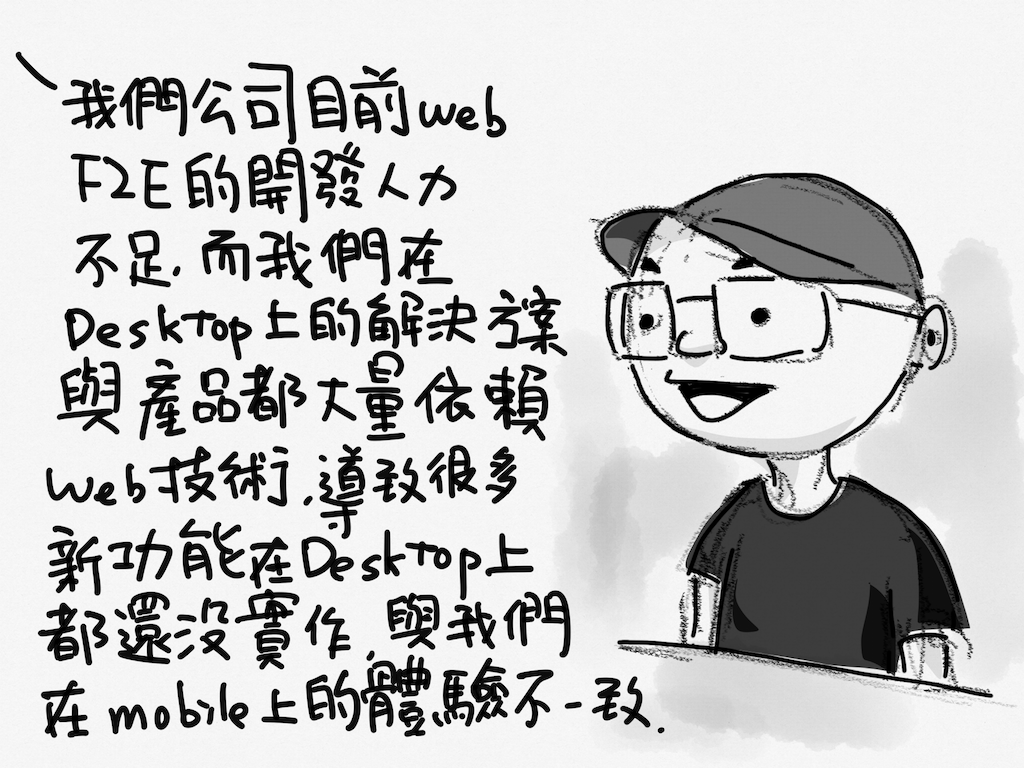 我們公司目前web
F2E的開發人力
不足,而我們在
Desktop上的解決方案
與產品都大量依賴
web技術,導致很多
新功能在Desktop上
都還沒實作,與我們
在mobile上的體驗不一致.